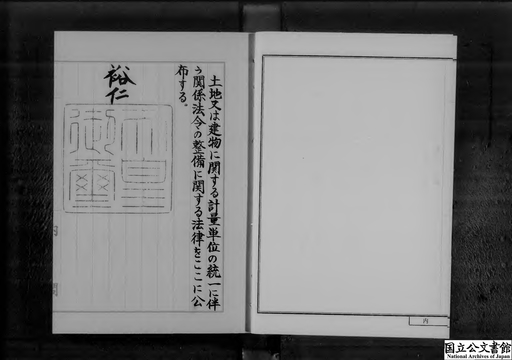 土地又は建物に関する計量単位の統一に伴
う関係法令の整備に関する法律をここに公
布する。
裕仁
天皇
御璽
内
国立公文書館
National Archives of Japan